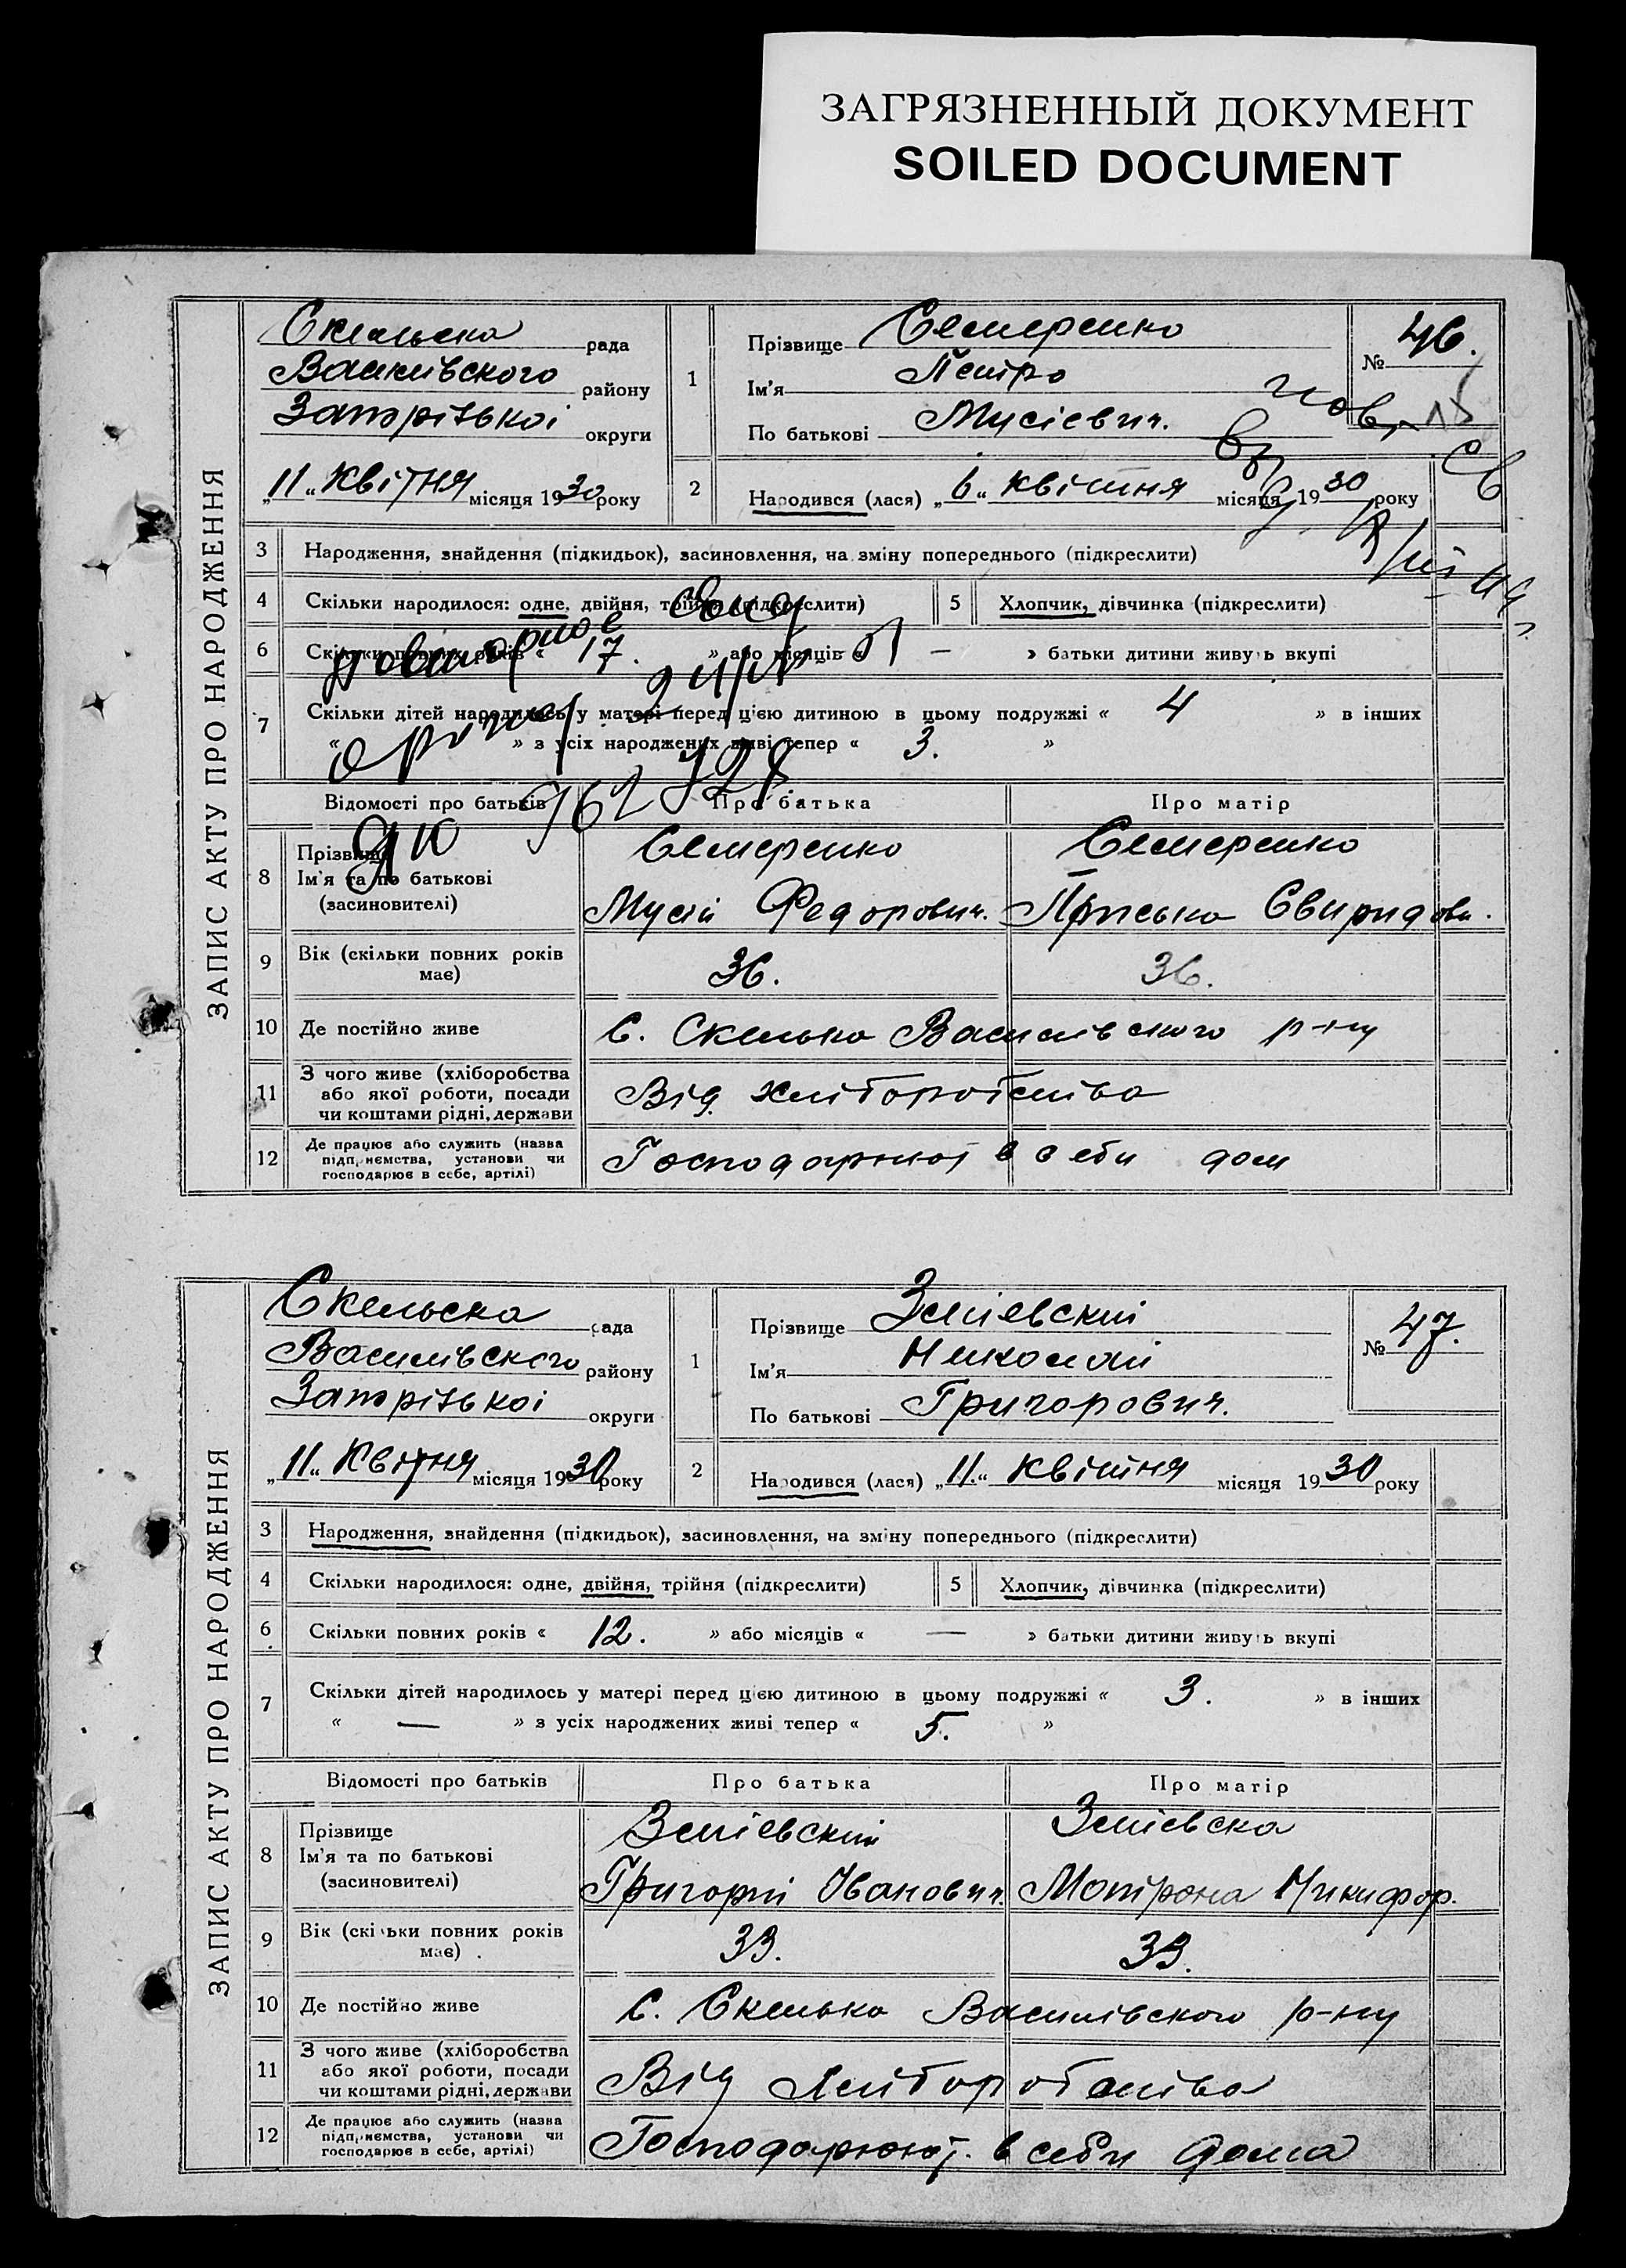 ЗАГРЯЗНЕННЫЙ ДОКУМЕНТ
SOILED DOCUMENT
ЗАПИС АКТУ ПРО НАРОДЖЕННЯ
Скельська рада
Василівського району
Запорізької округи
„11“ Квітня місяця 1930 року
1
Прізвище Семеренко
Ім'я Петро
По батькові Мусієвич.
№ 46.
2
Народився (лася) „6“ квітня місяця 1930 року
3 Народження, знайдення (підкидьок), засиновлення, на зміну попереднього (підкреслити)
4 Скільки народилося: одне, двійня, трійня (підкреслити) 5 Хлопчик, дівчинка (підкреслити)
6 Скільки повних років « 17. » або місяців « — » батьки дитини живуть вкупі
7 Скільки дітей народилось у матері перед цією дитиною в цьому подружжі « 4 » в інших
« » з усіх народжених живі тепер « 3. »
Відомості про батьків Про батька Про матір
8 Прізвище Семеренко Семеренко
Ім'я та по батькові
(засновителі) Мусій Федорович. Пріська Свиридовн.
9 Вік (скільки повних років має) 36. 36.
10 Де постійно живе С. Скелька Василівського р-ну
11 З чого живе (хліборобства
або якої роботи, посади
чи коштами рідні, держави Від хліборобства
12 Де працює або служить (назва
підприємства, установи чи
господарює в себе, артілі) Господарюют в себи дом
ЗАПИС АКТУ ПРО НАРОДЖЕННЯ
Скельска рада
Василівського району
Запорізької округи
„11“ Квітня місяця 1930 року
1
Прізвище Зміевский
Ім'я Николай
По батькові Григорович.
№ 47.
2
Народився (лася) „11.“ Квітня місяця 1930 року
3 Народження, знайдення (підкидьок), засиновлення, на зміну попереднього (підкреслити)
4 Скільки народилося: одне, двійня, трійня (підкреслити) 5 Хлопчик, дівчинка (підкреслити)
6 Скільки повних років « 12. » або місяців « — » батьки дитини живуть вкупі
7 Скільки дітей народилось у матері перед цією дитиною в цьому подружжі « 3. » в інших
« — » з усіх народжених живі тепер « 5. »
Відомості про батьків Про батька Про матір
8 Прізвище Зміевский Зміевска
Ім'я та по батькові
(засиновителі) Григорій Іванович. Мотрона Никифор.
9 Вік (скільки повних років має) 33. 33.
10 Де постійно живе С. Скелька Василівського р-ну
11 З чого живе (хліборобства
або якої роботи, посади
чи коштами рідні, держави Від хліборобства
12 Де працює або служить (назва
підприємства, установи чи
господарює в себе, артілі) Господарюют. в себи дома